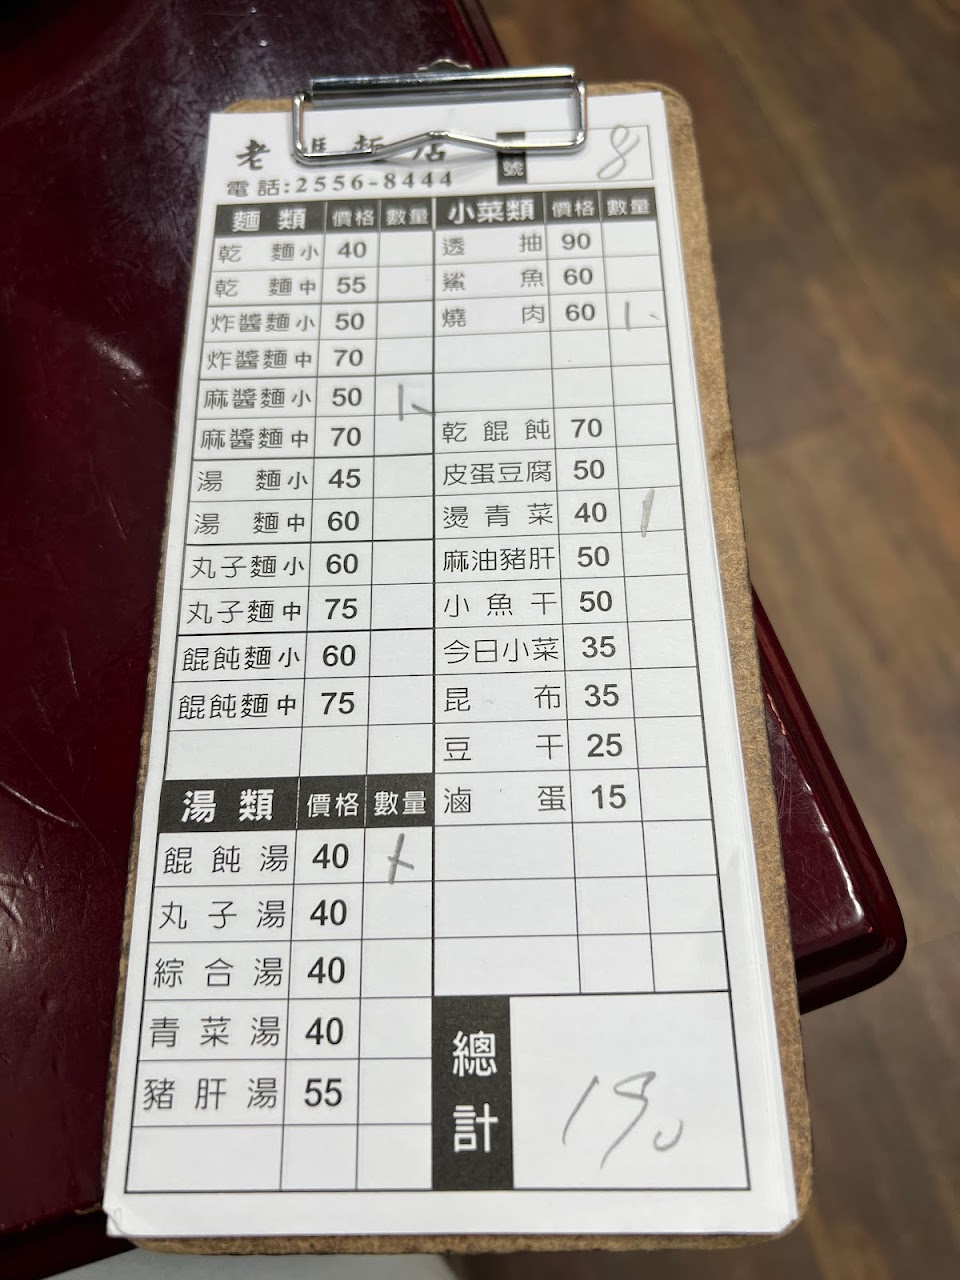 老媽麵店
號 8
電話:2556-8444
麵類 價格 數量 小菜類 價格 數量
乾麵小 40 透抽 90
乾麵中 55 鯊魚 60
炸醬麵小 50 燒肉 60 1
炸醬麵中 70
麻醬麵小 50 1
麻醬麵中 70 乾餛飩 70
湯麵小 45 皮蛋豆腐 50
湯麵中 60 燙青菜 40 1
丸子麵小 60 麻油豬肝 50
丸子麵中 75 小魚干 50
餛飩麵小 60 今日小菜 35
餛飩麵中 75 昆布 35
豆干 25
湯類 價格 數量 滷蛋 15
餛飩湯 40 1
丸子湯 40
綜合湯 40
青菜湯 40
豬肝湯 55
總計 190